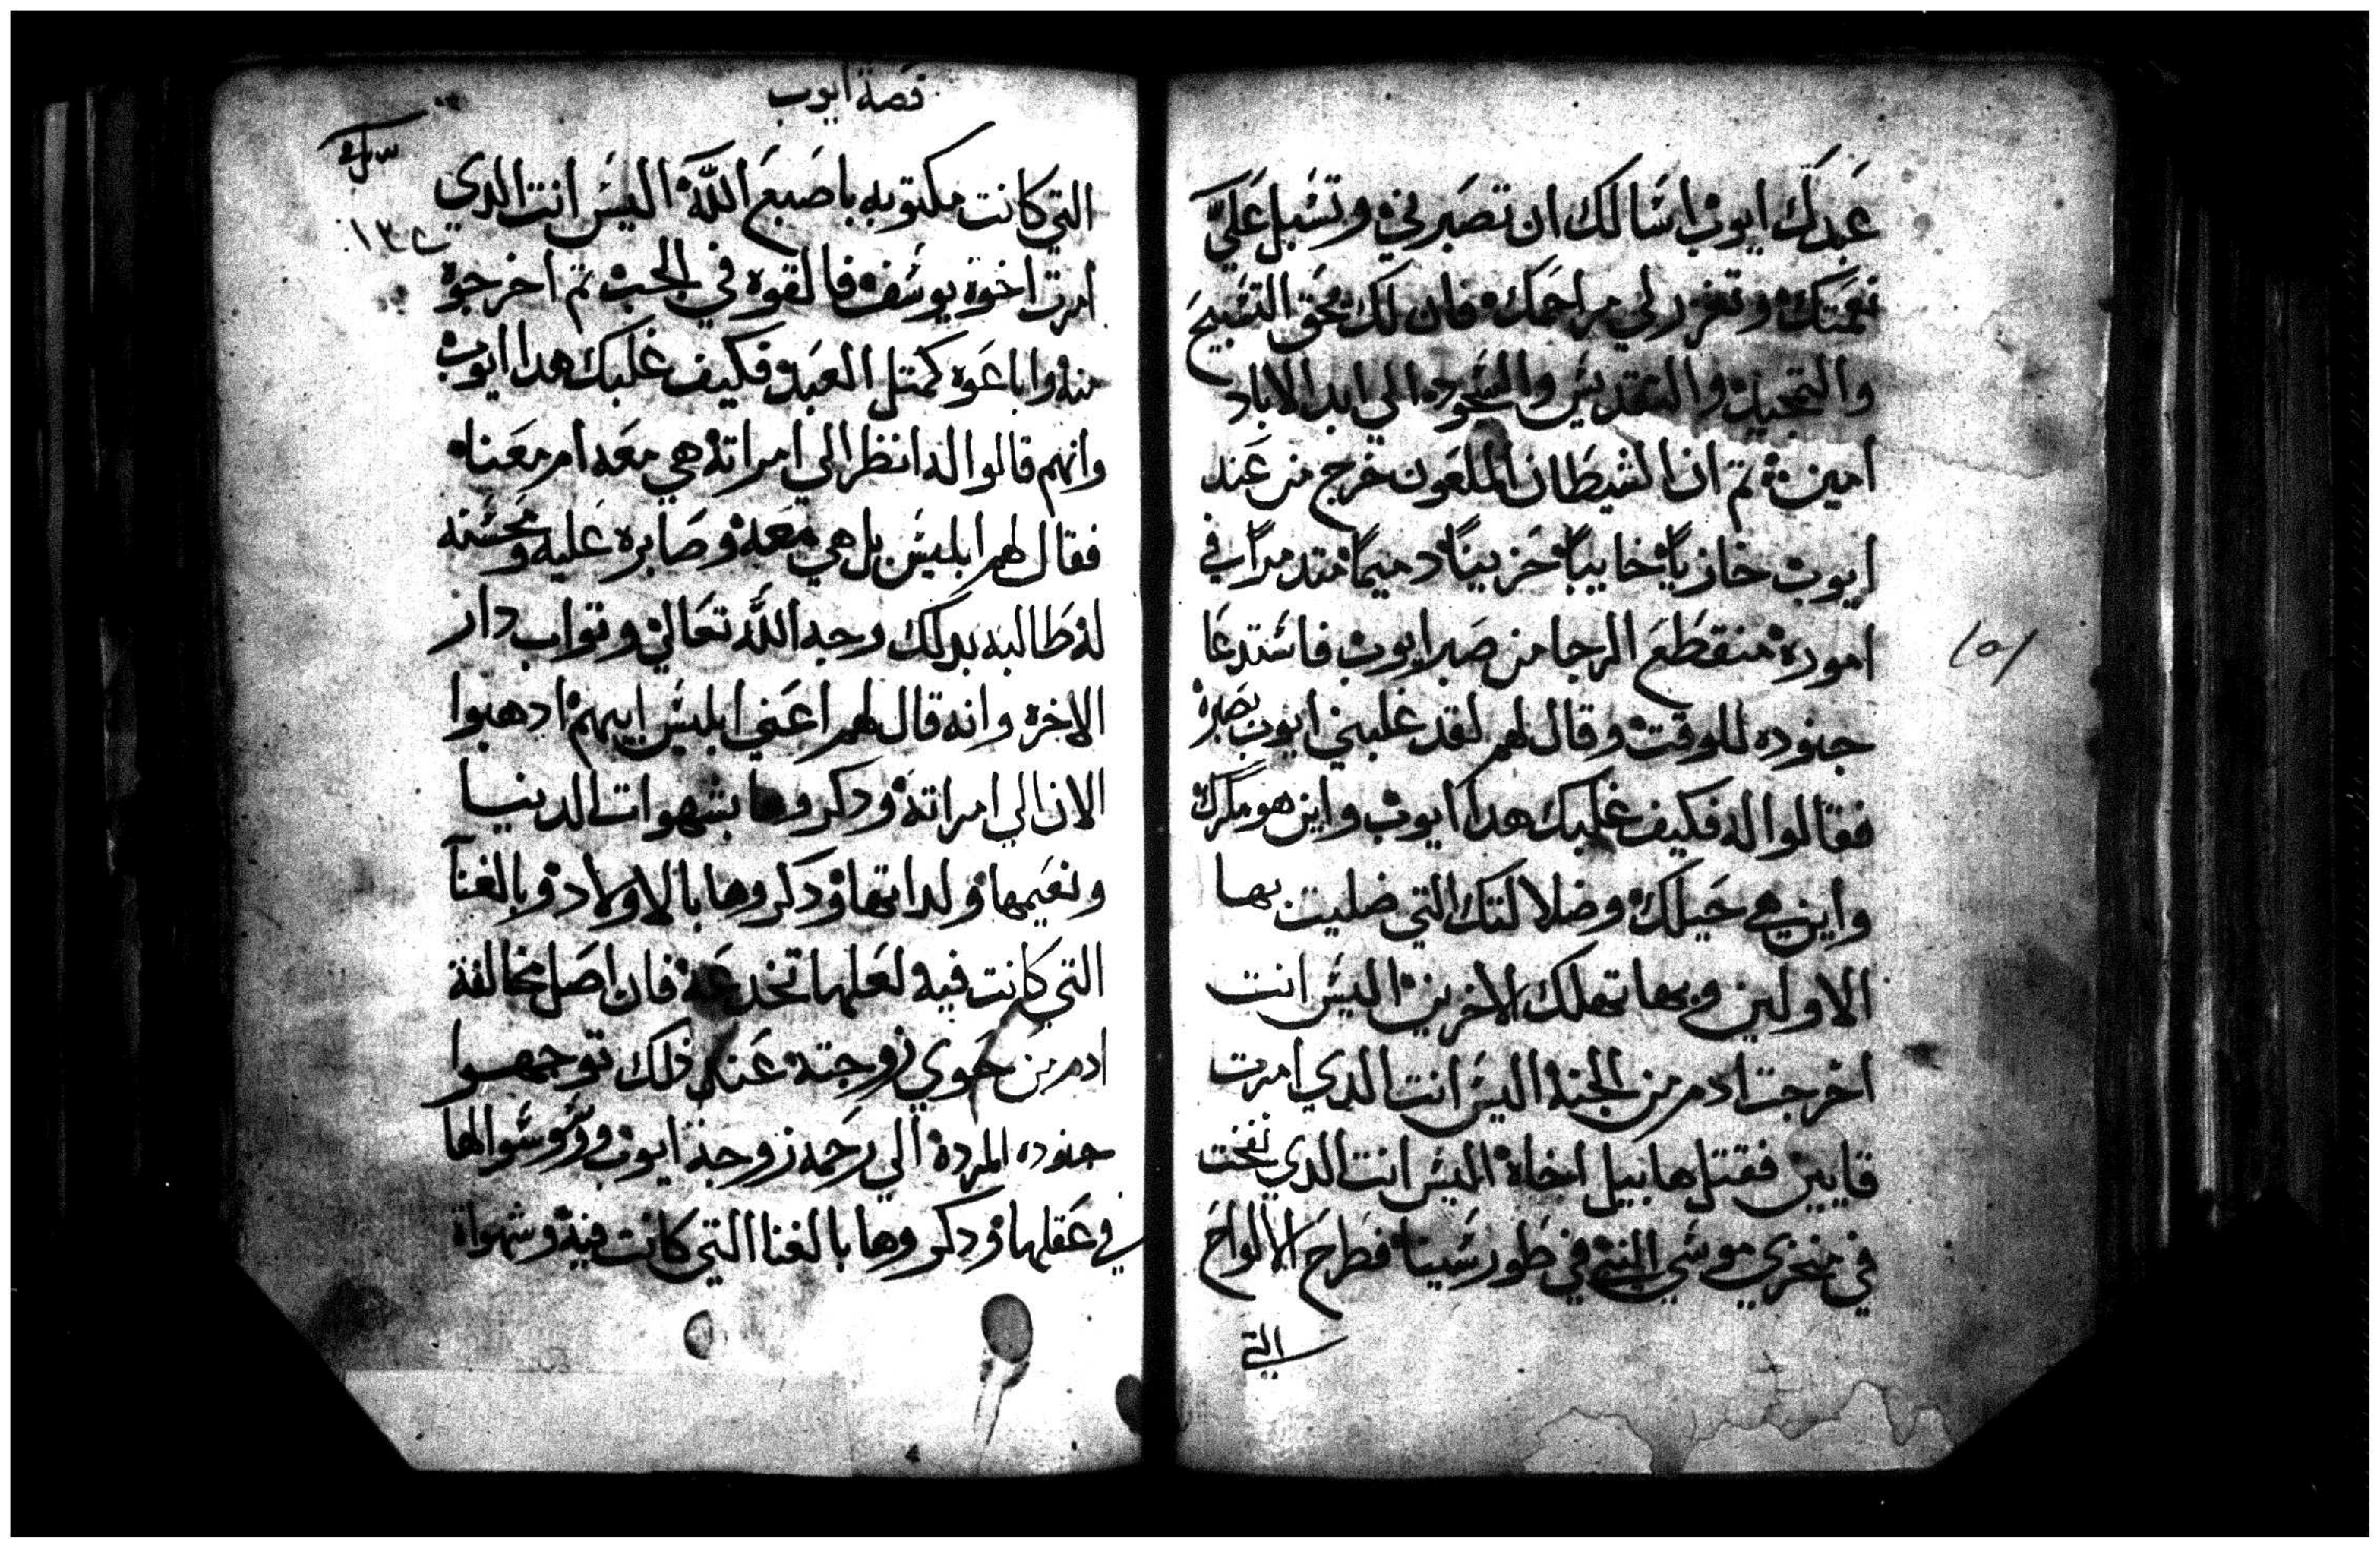 عبدك ايوب اسالك ان تصبرني وتسبل علي
نعمتك وتغزر لي مراحمك فان لك يحق التسبيح
والتمجيد والتقديس والسجود الي ابد الاباد
امين تم ان الشيطان الملعون خرج من عند
ايوب خازياً خايباً حزيناً دميماً متدمراً في
اموره منقطع الرجا من صبر ايوب فاستدعا
جنوده للوقت وقال لهم لقد غلبني ايوب بصبره
فقالوا له فكيف غلبك هدا ايوب واين هو مكرك
واين هي حيلك وضلالتك التي ضليت بها
الاولين وبها تهلك الاخرين اليس انت
اخرجت ادم من الجنه اليس انت الدي امرت
قايين فقتل هابيل اخاه اليس انت الدي نفخت
في منخري موسي النبي في طور سينا فطرح الالواح
التي
قصة ايوب
التي كانت مكتوبه باصبع الله اليس انت الدي
امرت اخوة يوسف فالقوه في الجب تم اخرجوه
منه واباعوه كمتل العبد فكيف غلبك هدا ايوب
وانهم قالوا له انظر الي امراته هي معه ام معنا
فقال لهم ابليس بل هي معه وصابره عليه ومحسنه
له طالبه بدلك وجه الله تعالي وتواب دار
الاخره وانه قال لهم اعني ابليس ابيهم ادهبوا
الان الي امراته ودكروها بشهوات الدنيا
ونعيمها ولداتها ودكروها بالاولاد وبالغنآ
التي كانت فيه لعلها تخدعه فان اصل مخالفة
ادم من حوي زوجته عند ذلك توجهوا
جنوده المرده الي رحمه زوجة ايوب ووسوسوا لها
في عقلها ودكروها بالغنا التي كانت فيه وشهواة